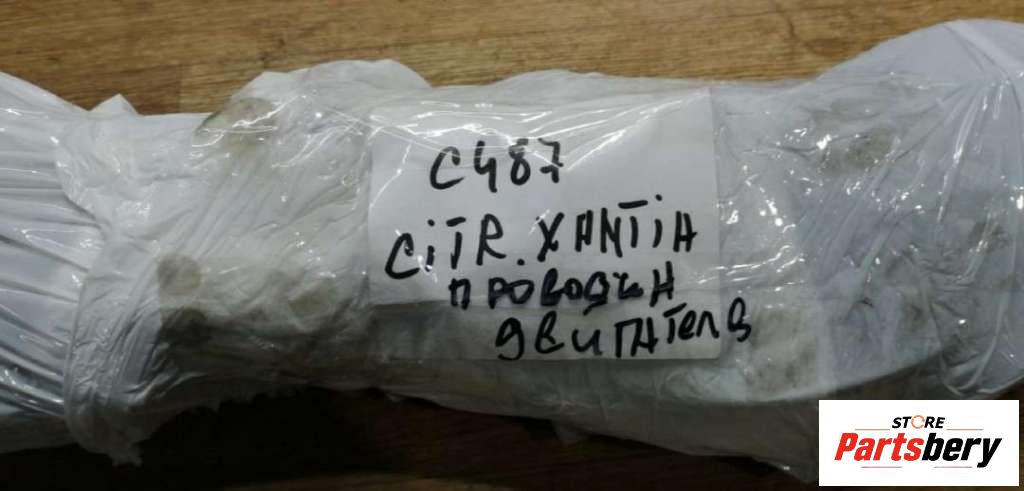 C487
CiTR. XANTiA
ПРОВОДКА
ДВИГАТЕЛЯ
STORE
Partsbery